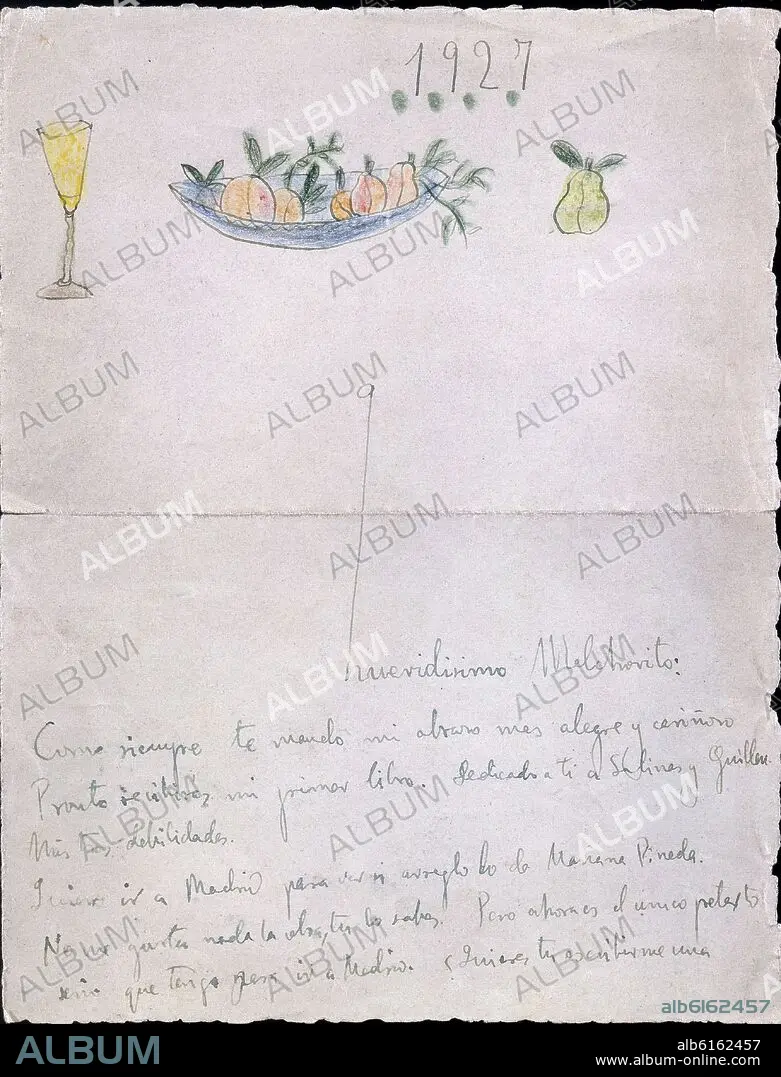 1927
Queridísimo Melchorito:
Como siempre te mando mi abrazo mas alegre y cariñoso
Pronto recibirás mi primer libro. Dedicado a ti a Salinas y Guillen.
Mis tres debilidades.
Quiero ir a Madrid para ver si arreglo lo de Mariana Pineda.
No me gusta nada la obra, tu lo sabes. Pero ahora es el único pretexto
serio que tengo para ir a Madrid. ¿Quieres tu escribirme una
alb6162457
ALBUM
alb6162457
www.album-online.com